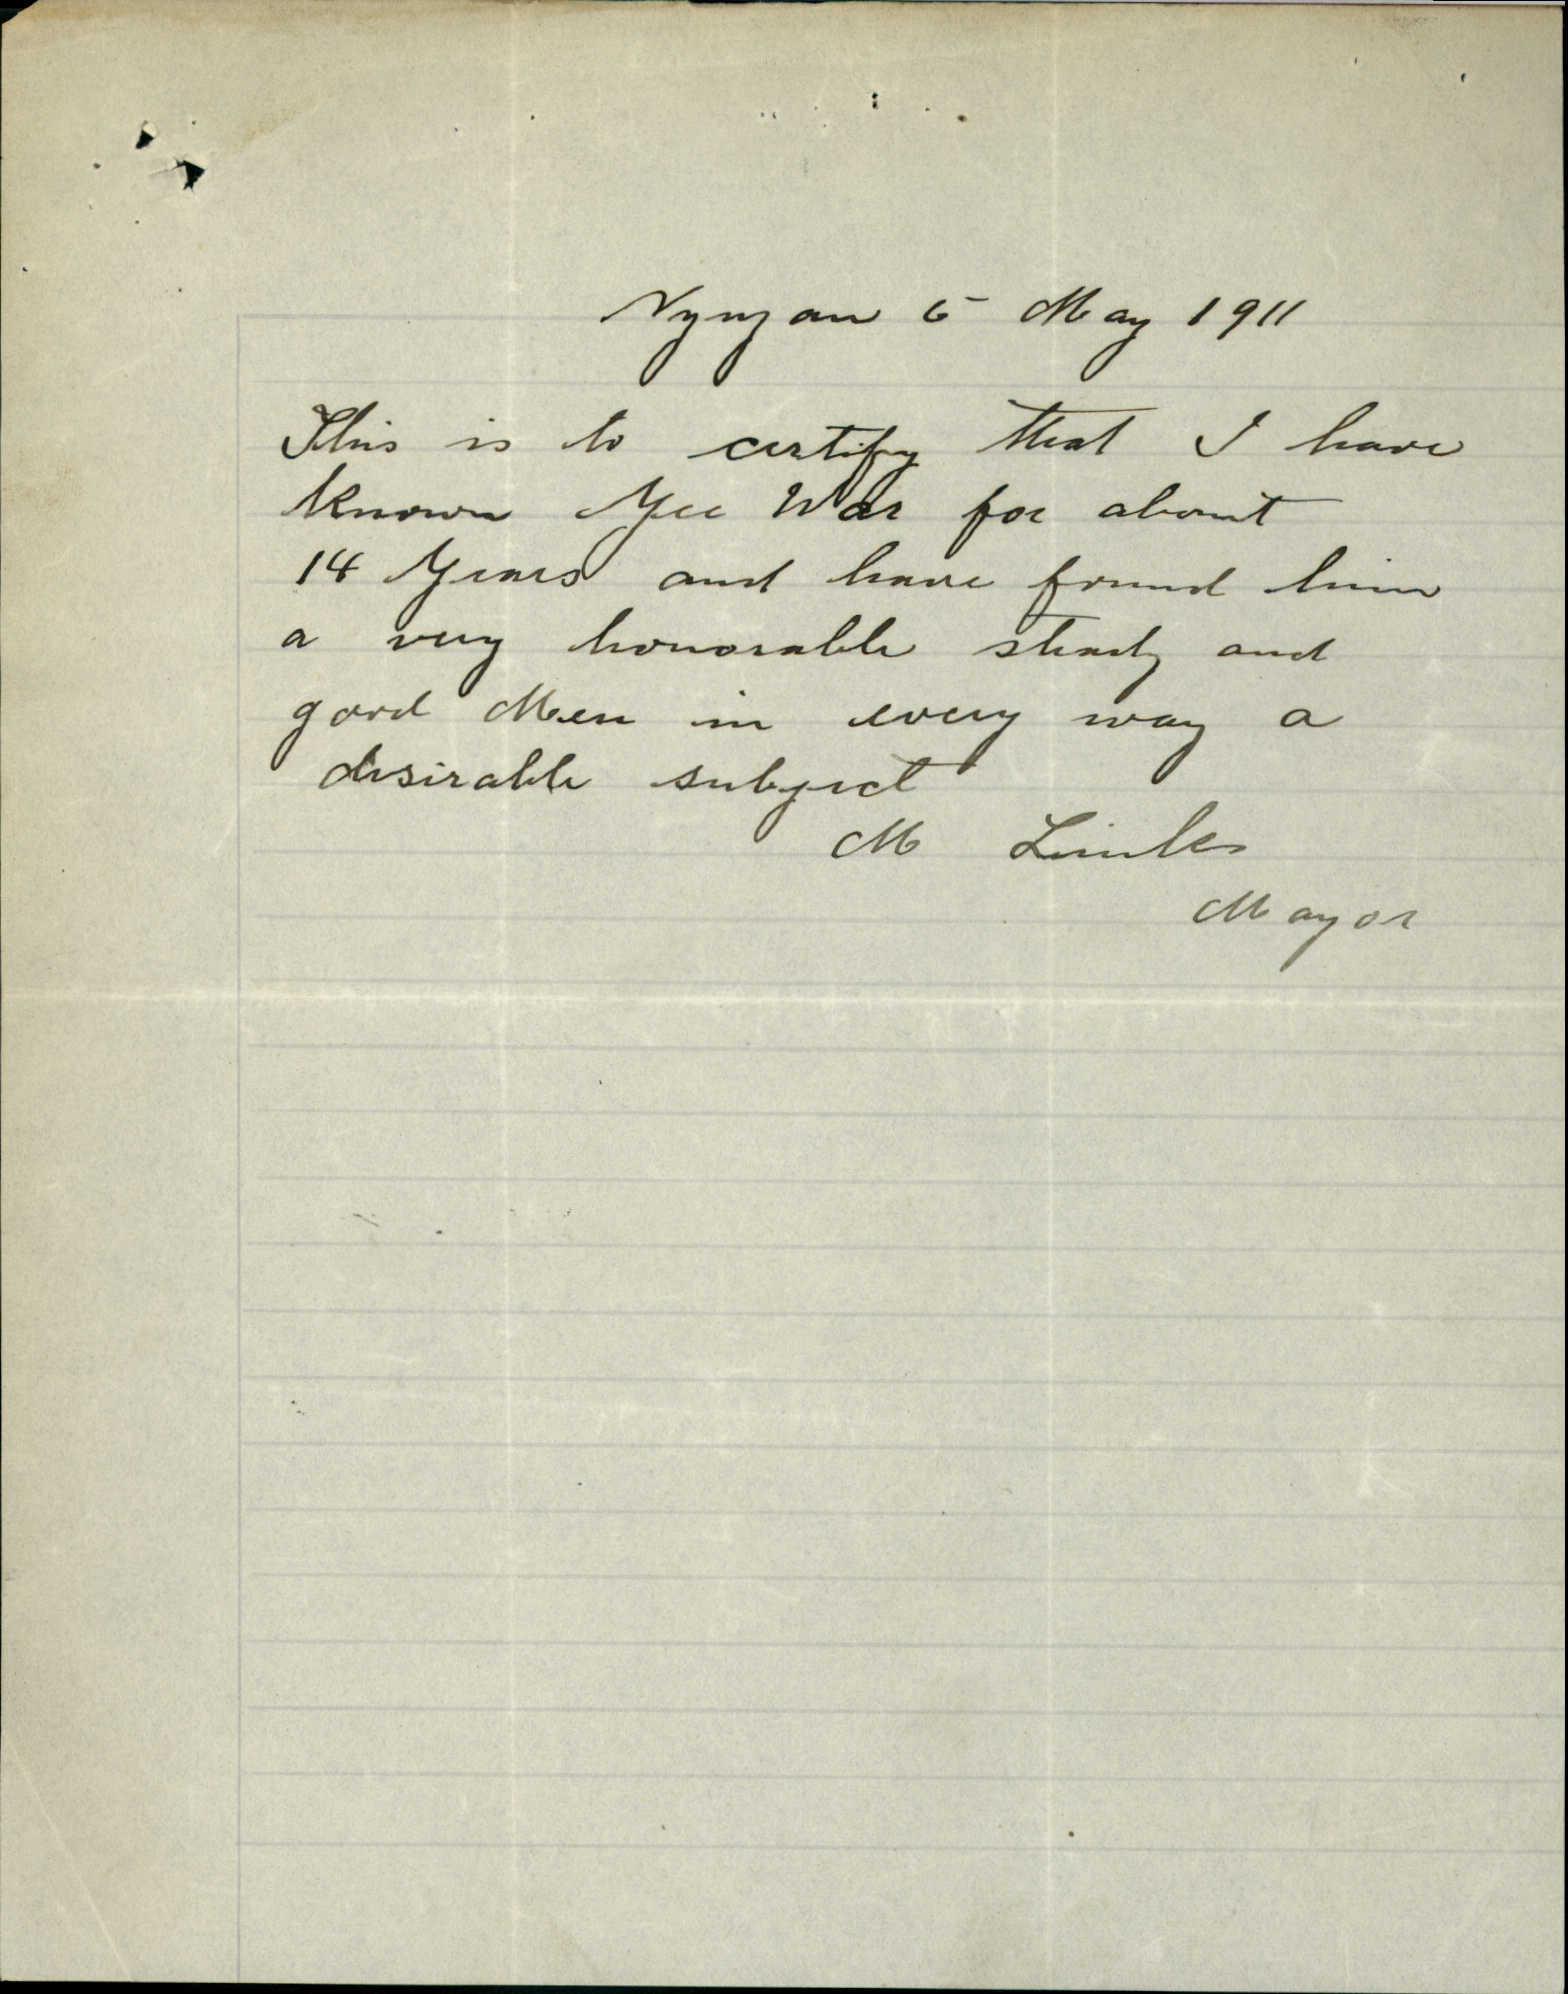 Nyngan 6 May 1911
This is to certify that I have
known Yee War for about
14 Years and have found him
a very honorable steady and
good Men in every way a
desirable subject
M
Mayor